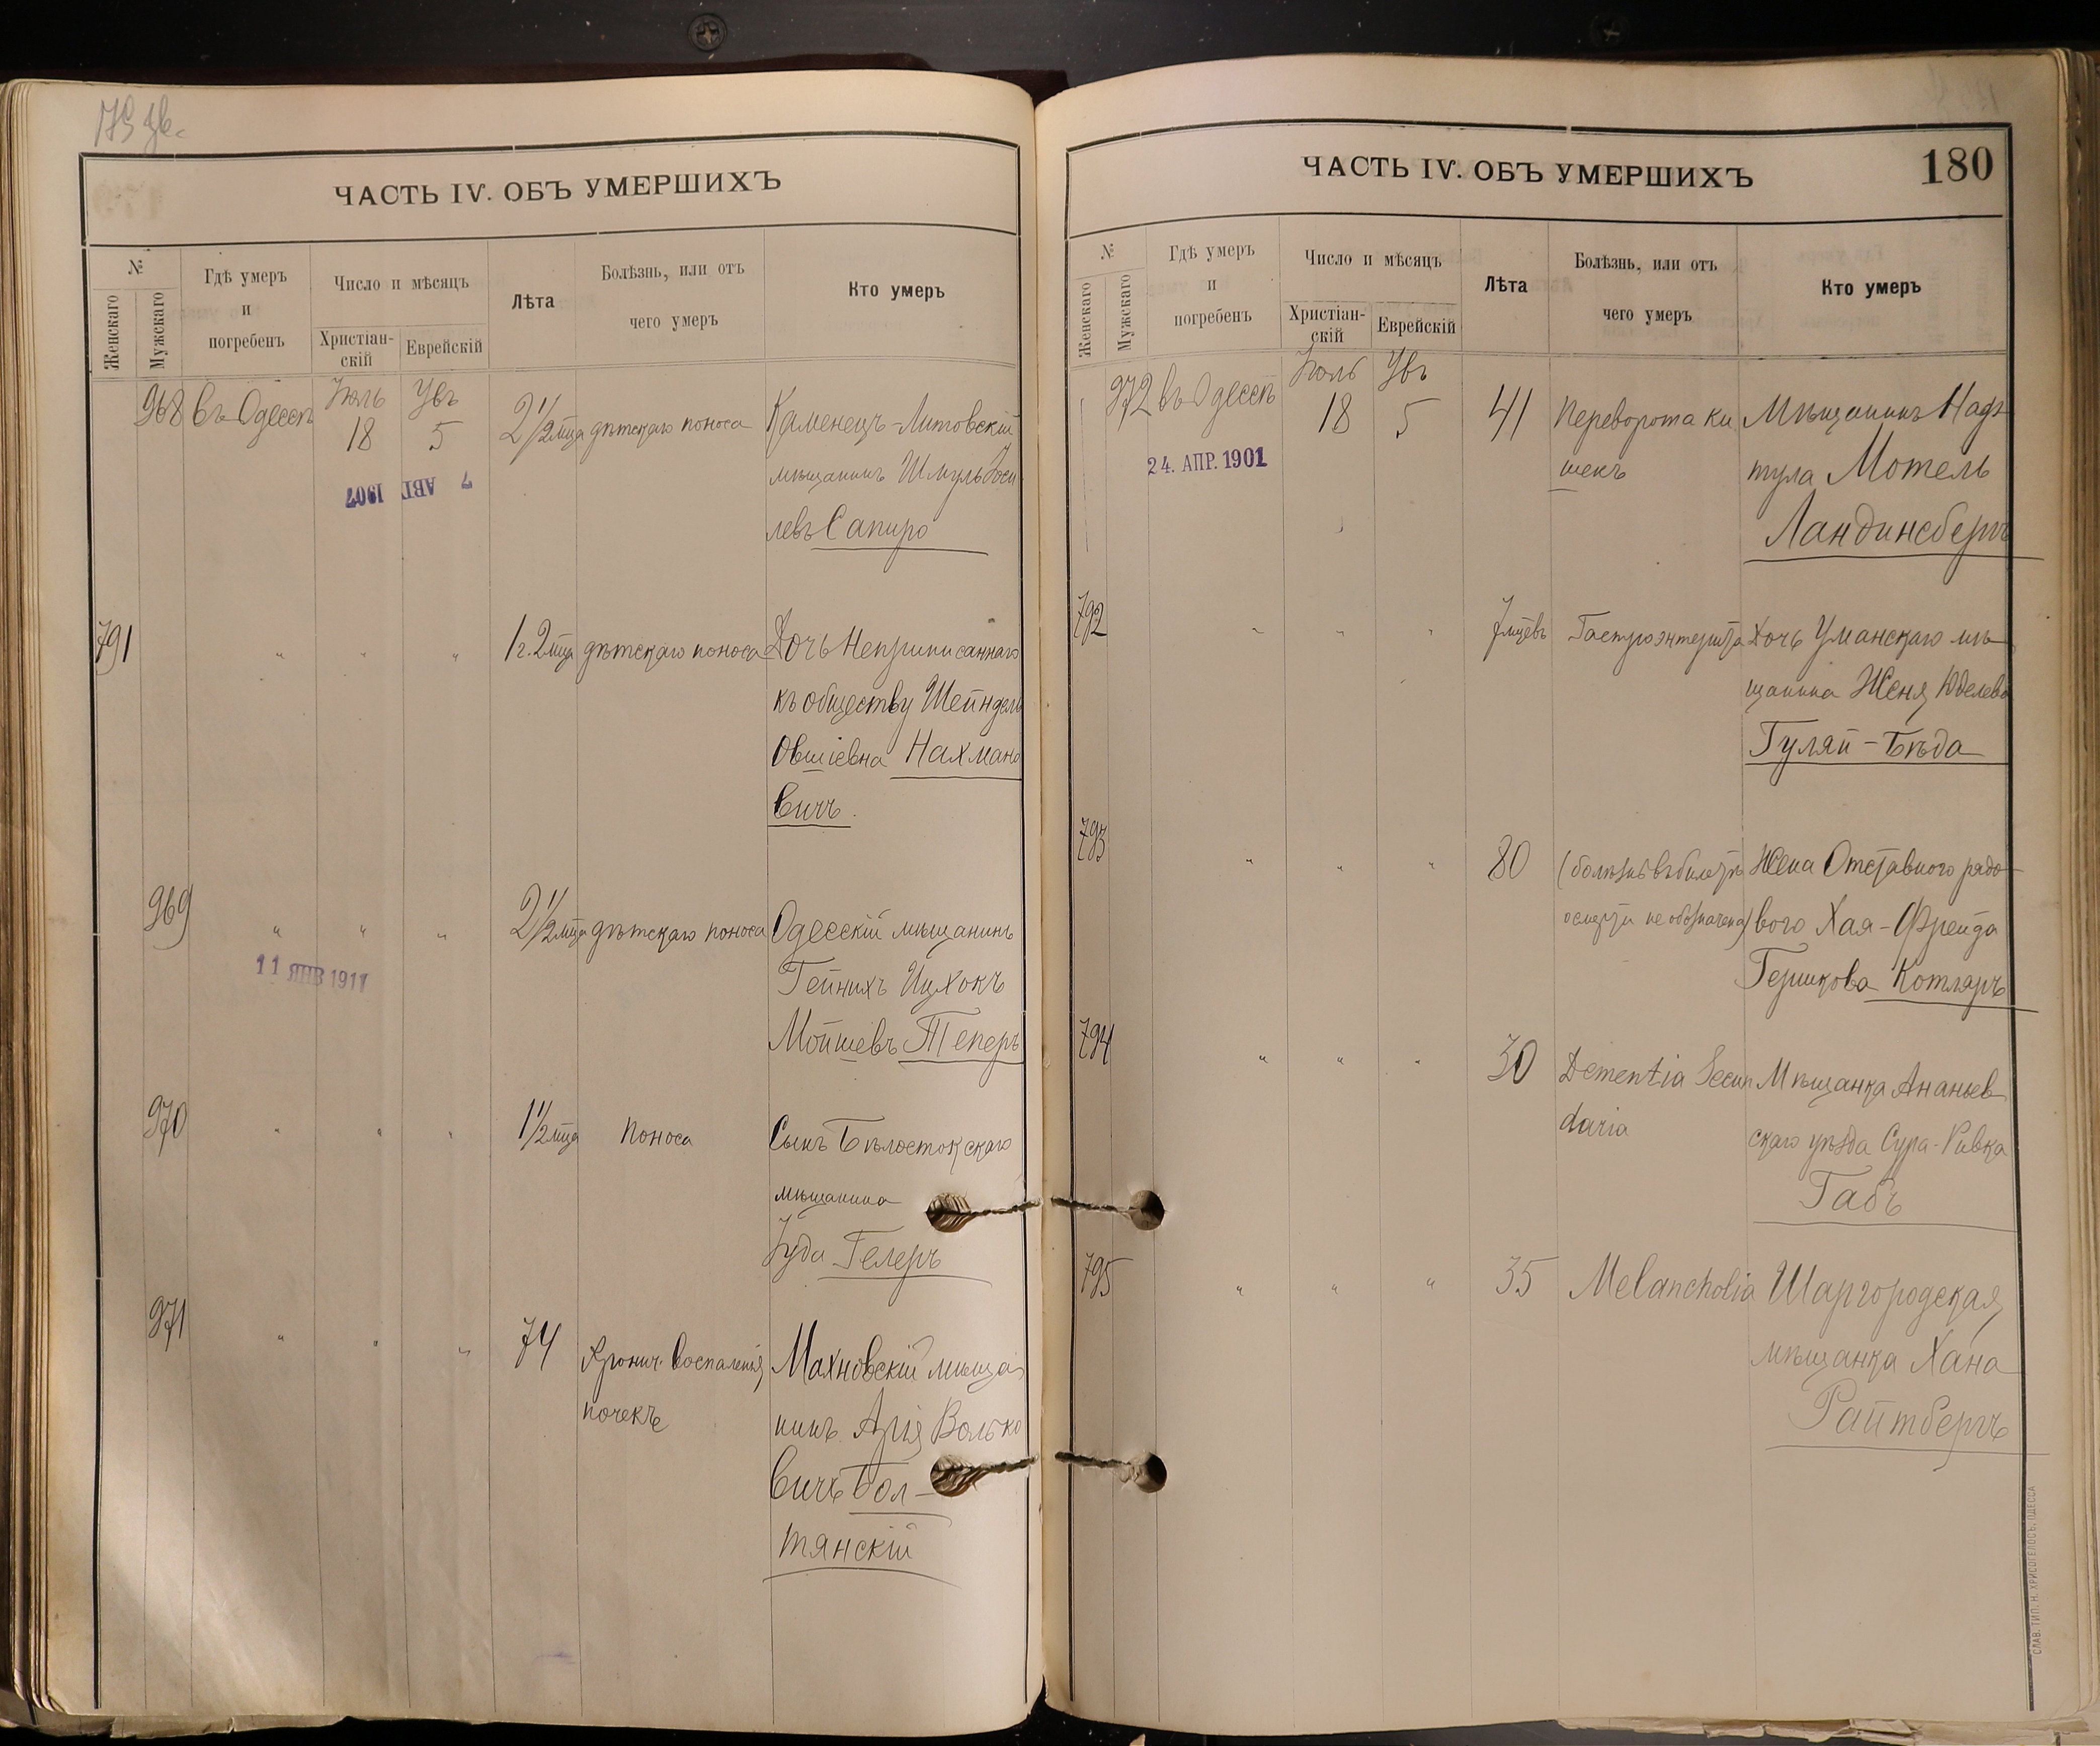 ЧАСТЬ IV. ОБЪ УМЕРШИХЪ
№
Женскаго
Мужскаго
Гдѣ умеръ
и
погребенъ
Число и мѣсяцъ
Христіан-
скій
Еврейскій
Лѣта
Болѣзнь, или отъ
чего умеръ
Кто умеръ
968 въ Одессѣ Іюль 18 Увъ 5 2 1/2 мца дѣтскаго поноса Каменецъ-Литовскій
мѣщанинъ Шмуль Іоси
левъ Сапиро
7 АВГ 1907
791 " " " 1 г. 2 мца дѣтскаго поноса Дочь Неприписаннаго
къ обществу Шейндель
Овшіевна Нахмано
вичъ.
969 " " " 2 1/2 мца дѣтскаго поноса Одесскій мѣщанинъ
Гейнихъ Ицхокъ
Мойшевъ Теперъ
11 ЯНВ 1911
970 " " " 1 1/2 мца Поноса Сынъ Бѣлостокскаго
мѣщанина
Іуда Гелеръ
971 " " " 74 Хронич. воспаленія Махновскій мѣща
почекъ нинъ Арія Волько
вичъ Бол-
тянскій
ЧАСТЬ IV. ОБЪ УМЕРШИХЪ
180
№
Женскаго
Мужскаго
Гдѣ умеръ
и
погребенъ
Число и мѣсяцъ
Христіан-
скій
Еврейскій
Лѣта
Болѣзнь, или отъ
чего умеръ
Кто умеръ
972 въ Одессѣ Іюль 18 Увъ 5 41 Переворота ки Мѣщанинъ Надъ
шекъ тула Мотель
Ландинсбергъ
24. АПР. 1901
792 " " " 7 мцевъ Гастроэнтерита Дочь Уманскаго мѣ
щанина Женя Юделева
Гуляй-Бѣда
793 " " " 80 (болѣзнь въ билетѣ Жена Отставного рядо-
о смерти не обозначена) вого Хая-Фрейда
Гершкова Котляръ
794 " " " 30 Dementia Secun Мѣщанка Ананьев
daria скаго уѣзда Сура-Ривка
Габъ
795 " " " 35 Melancholia Шаргородская
мѣщанка Хана
Райтбергъ
СЛАВ. ТИП. Н. ХРИСОГЕЛОСЪ, ОДЕССА